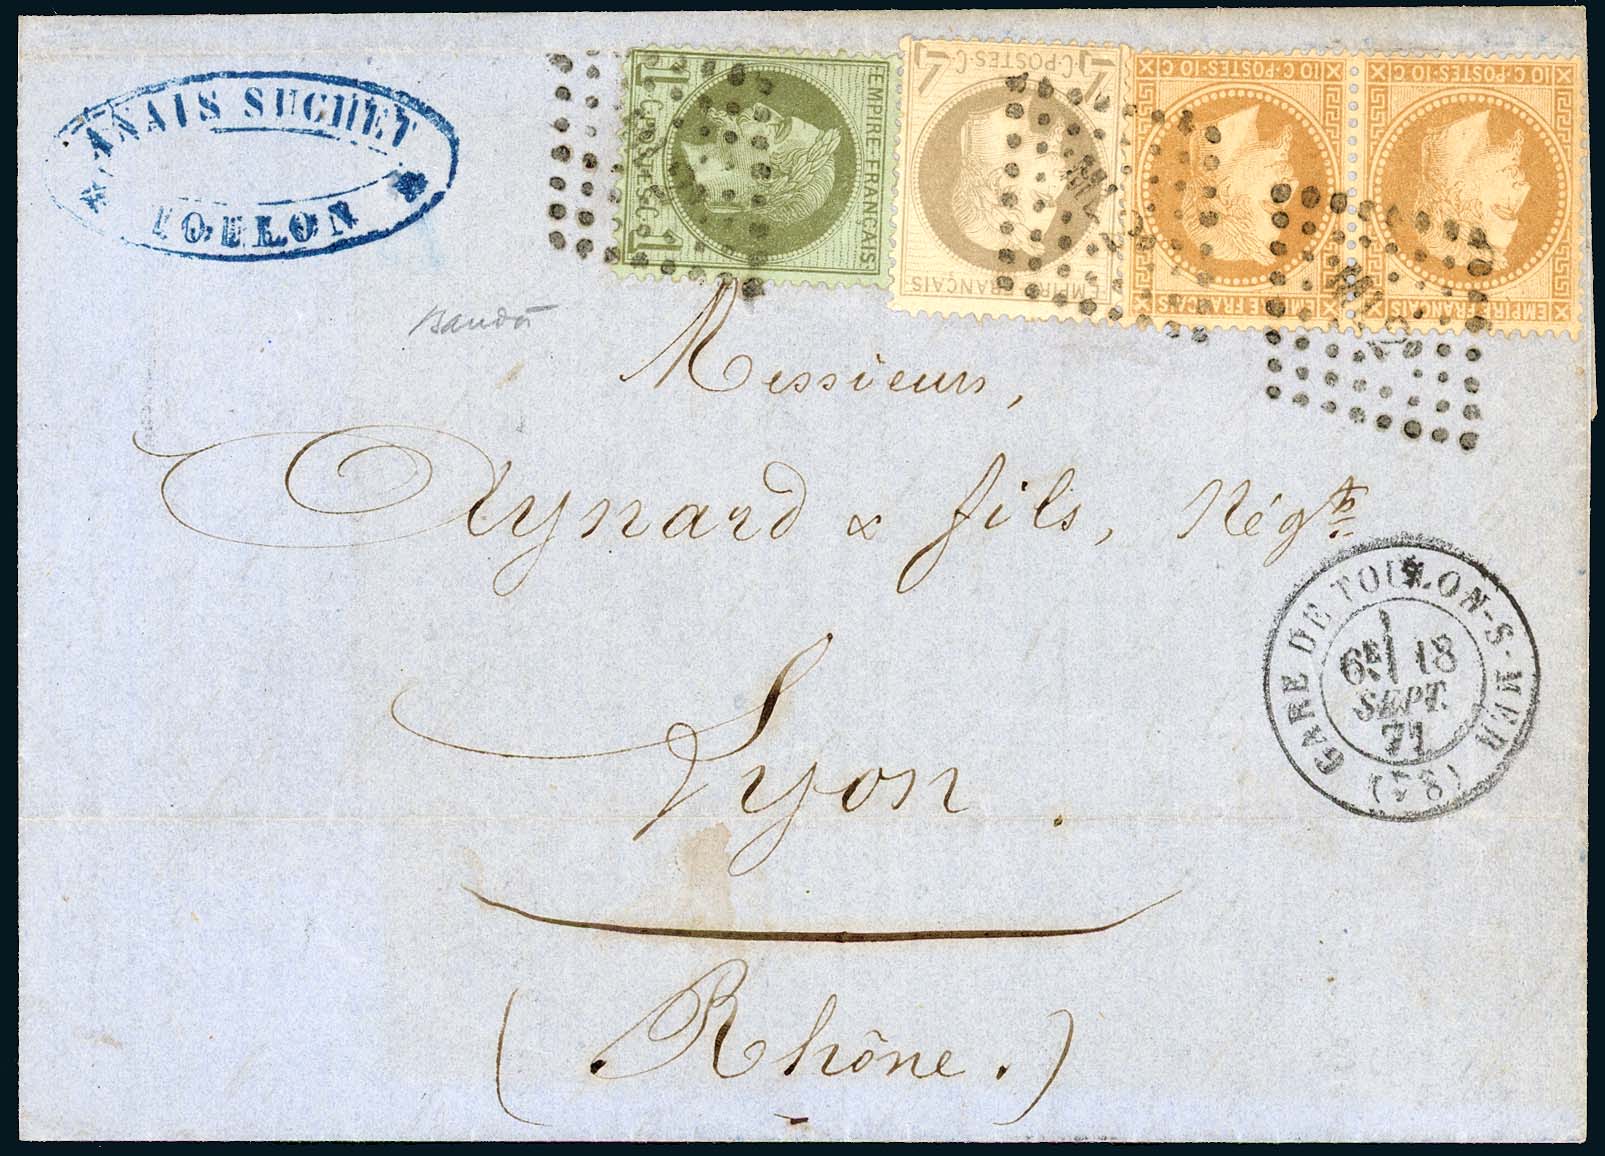 ANAIS SUCHET
TOULON
EMPIRE FRANCAIS
1 C·POSTES·C 1
4 C·POSTES·C 4
EMPIRE·FRANÇAIS
10 C·POSTES·10 C
EMPIRE FRANÇAIS
10 C·POSTES·10 C
EMPIRE FRANÇAIS
Messieurs,
Aynard & fils, Négts.
Lyon.
(Rhône.)
GARE DE TOULON-S-MER
6E 18
SEPT.
71
(78)